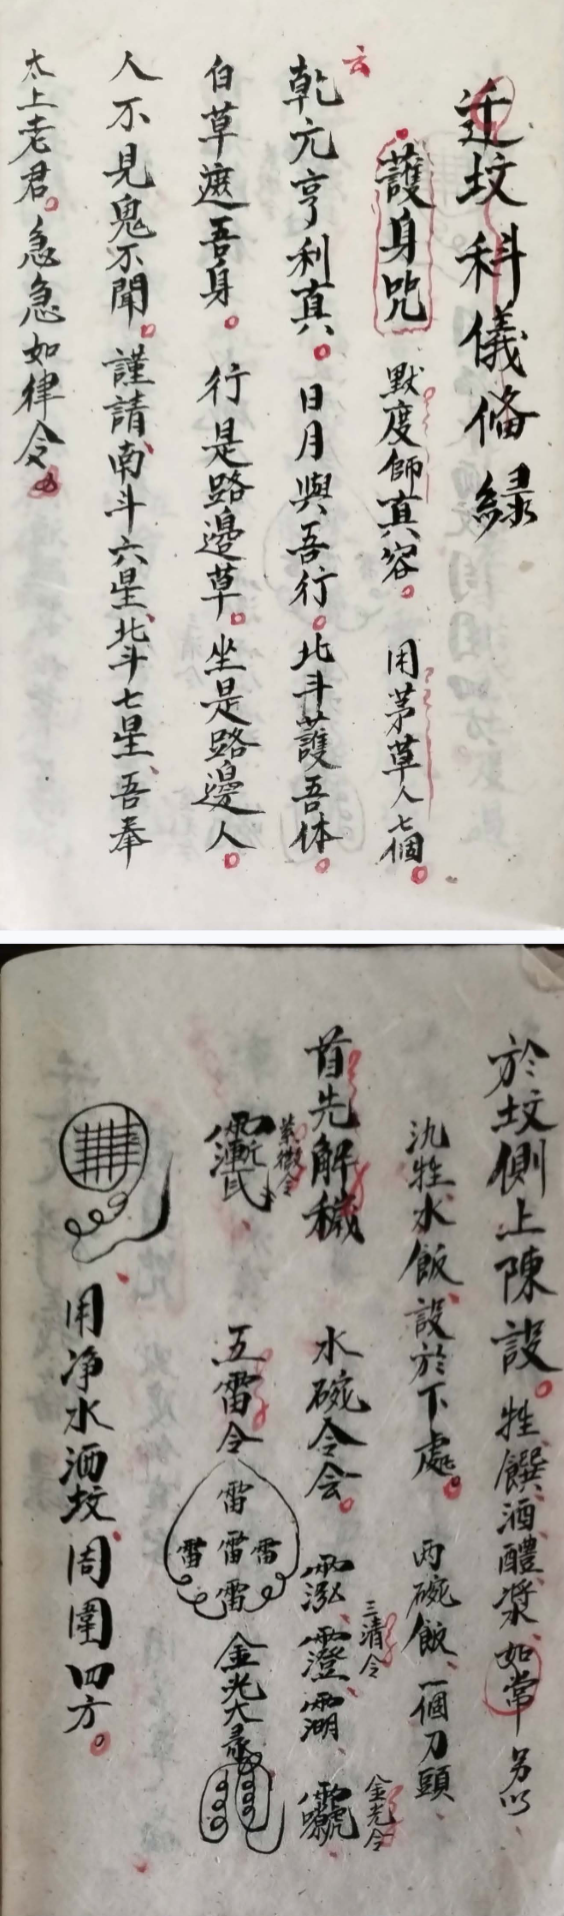 迁坟科儀俻錄
護身咒 默度師真容。用茅草人七個。
云
乾元亨利真。日月與吾行。北斗護吾体。
白草遮吾身。行是路邊草。坐是路邊人。
人不見鬼不聞。謹請南斗六星、北斗七星、吾奉
太上老君。急急如律令。
於坟側上陳設。牲饌酒醴漿如常 另以
氿牲水飯、設於下處。 两碗飯、一個刀頭
首先解穢 水碗令会。
三清令
金光令
紫微令
五雷令
雷
雷 雷 雷
雷
金光大彔
用净水洒坟、周圍四方。